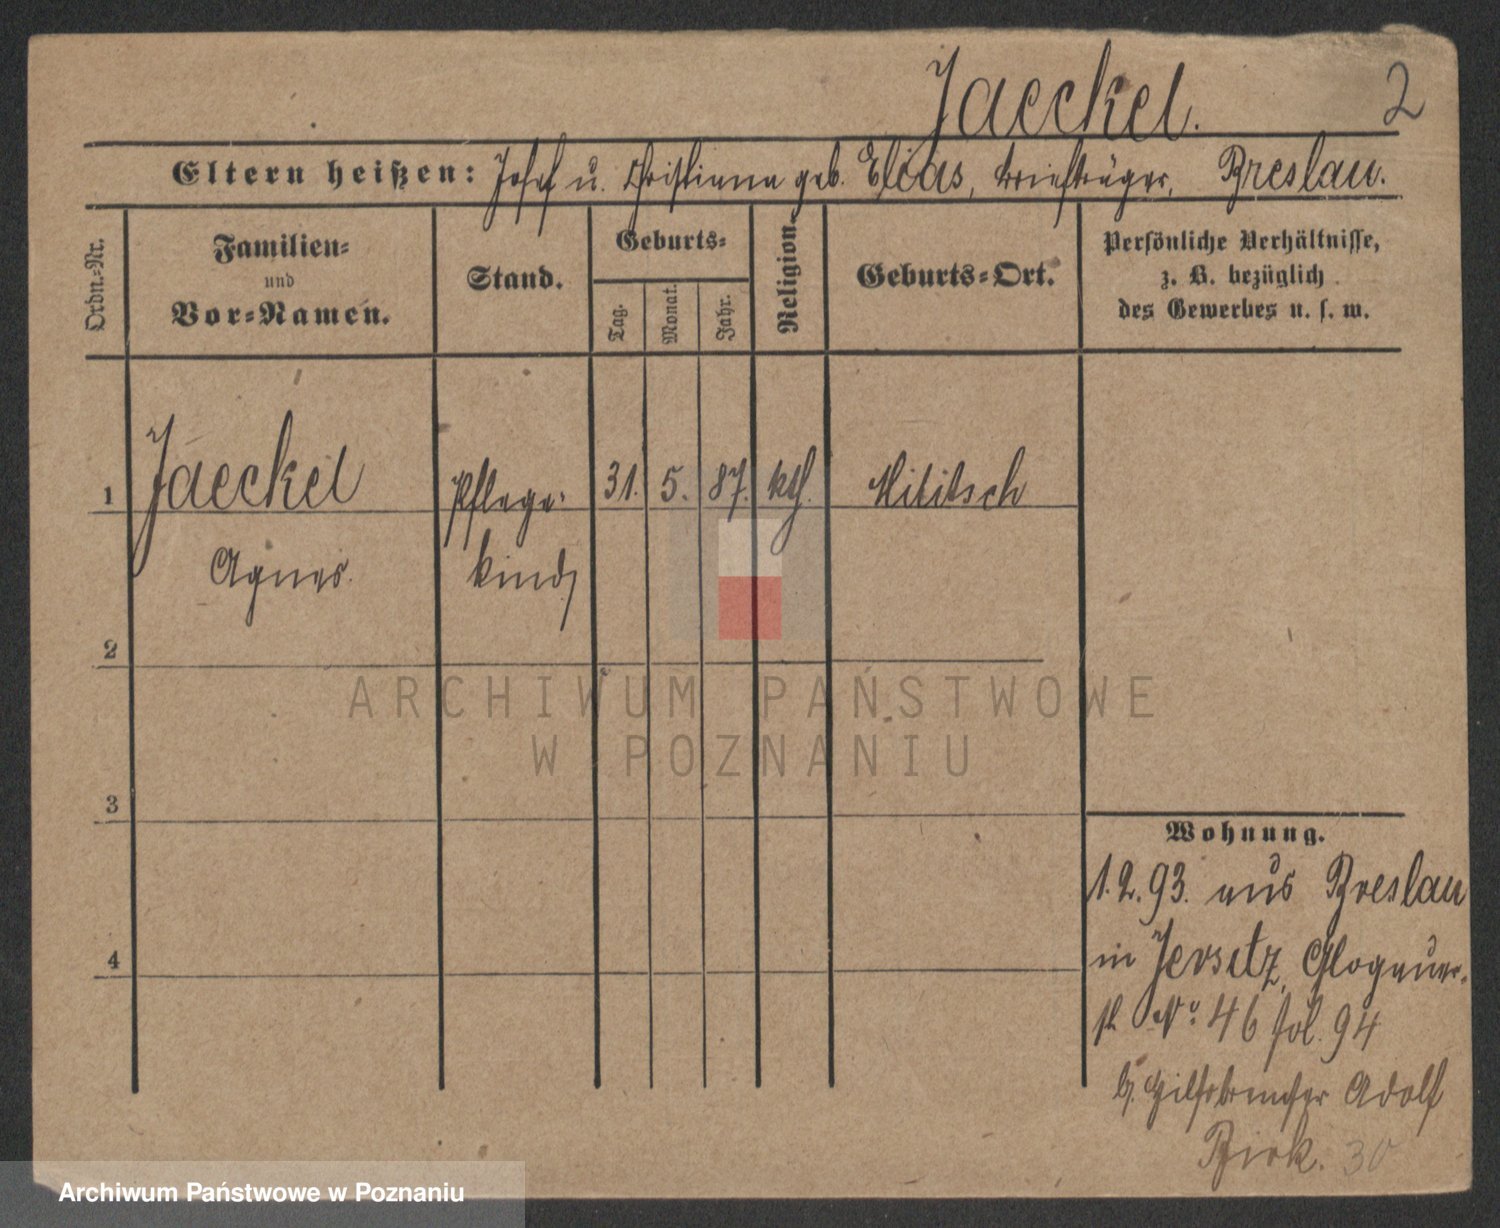 Jaeckel. 2
Eltern heißen: Josef u. Christiana geb. Elias, Briefträger, Breslau.
Ordn.-Nr.
Familien-
und
Vor-Namen.
Stand.
Geburts-
Tag.
Monat.
Jahr.
Religion.
Geburts-Ort.
Persönliche Verhältnisse,
z. B. bezüglich
des Gewerbes u. s. w.
1 Jaeckel Pflege- 31. 5. 87. kth. Militsch
Agnes. kind
2
ARCHIWUM PAŃSTWOWE
W POZNANIU
3
Wohnung.
1.2.93. aus Breslau
in Jersitz, Glogauer-
st No. 46 fol. 94
b. Hilfsbremser Adolf
Birk. 30
4
Archiwum Państwowe w Poznaniu